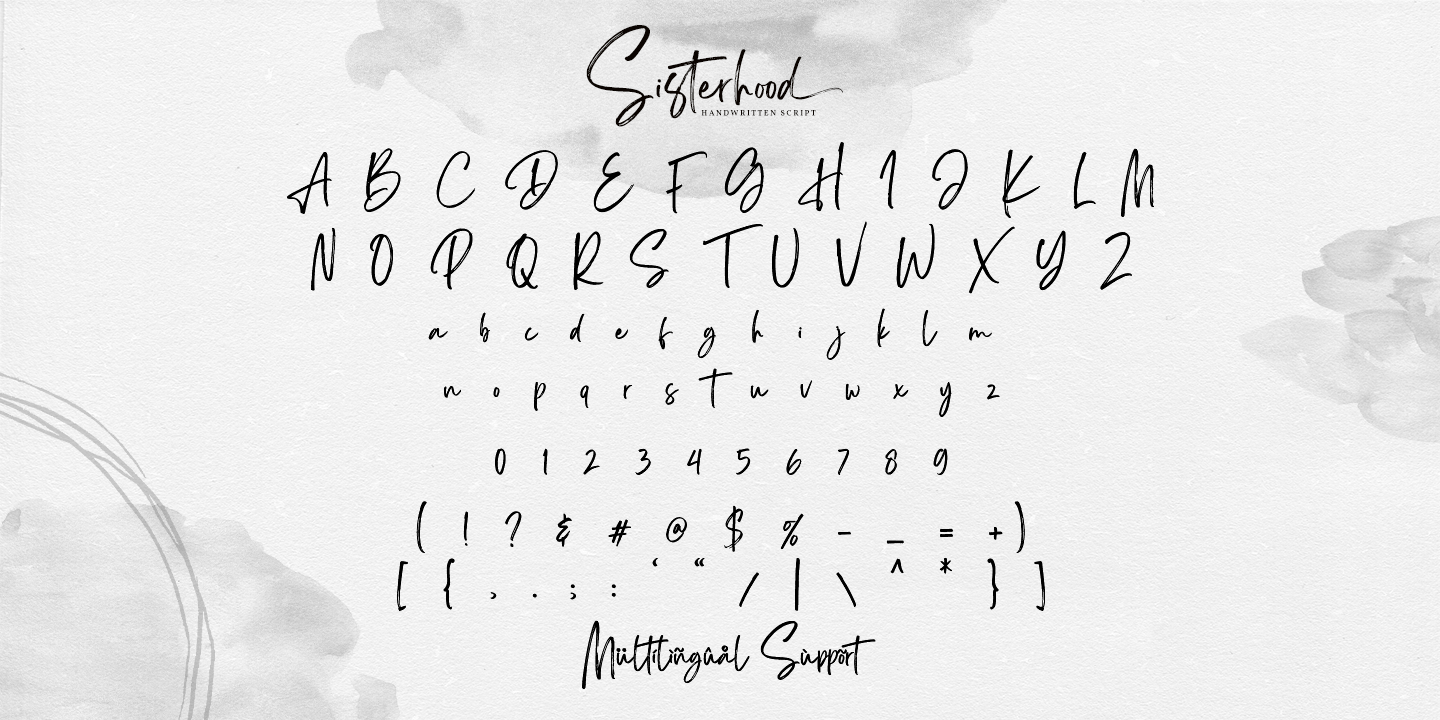 Sisterhood
HANDWRITTEN SCRIPT
A B C D E F G H I J K L M
N O P Q R S T U V W X Y Z
a b c d e f g h i j k l m
n o p q r s t u v w x y z
0 1 2 3 4 5 6 7 8 9
( ! ? & # @ $ % - _ = + )
[ { , . ; : ‘ “ / | \ ^ * } ]
Mültilìñgûål Sùppõrt